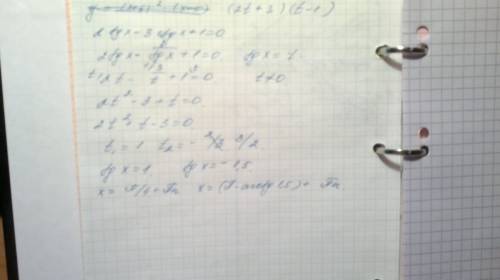 (2t+3)(t-1)
2tgx-3ctgx+1=0
2tgx-3/tgx+1=0 tgx=t
2t-3/t+1=0 t≠0
2t²-3+t=0
2t²+t-3=0
t₁=1 t₂=-3/2
tgx=1 tgx=-1,5
x=π/4+πn x=(π-arctg1,5)+πn